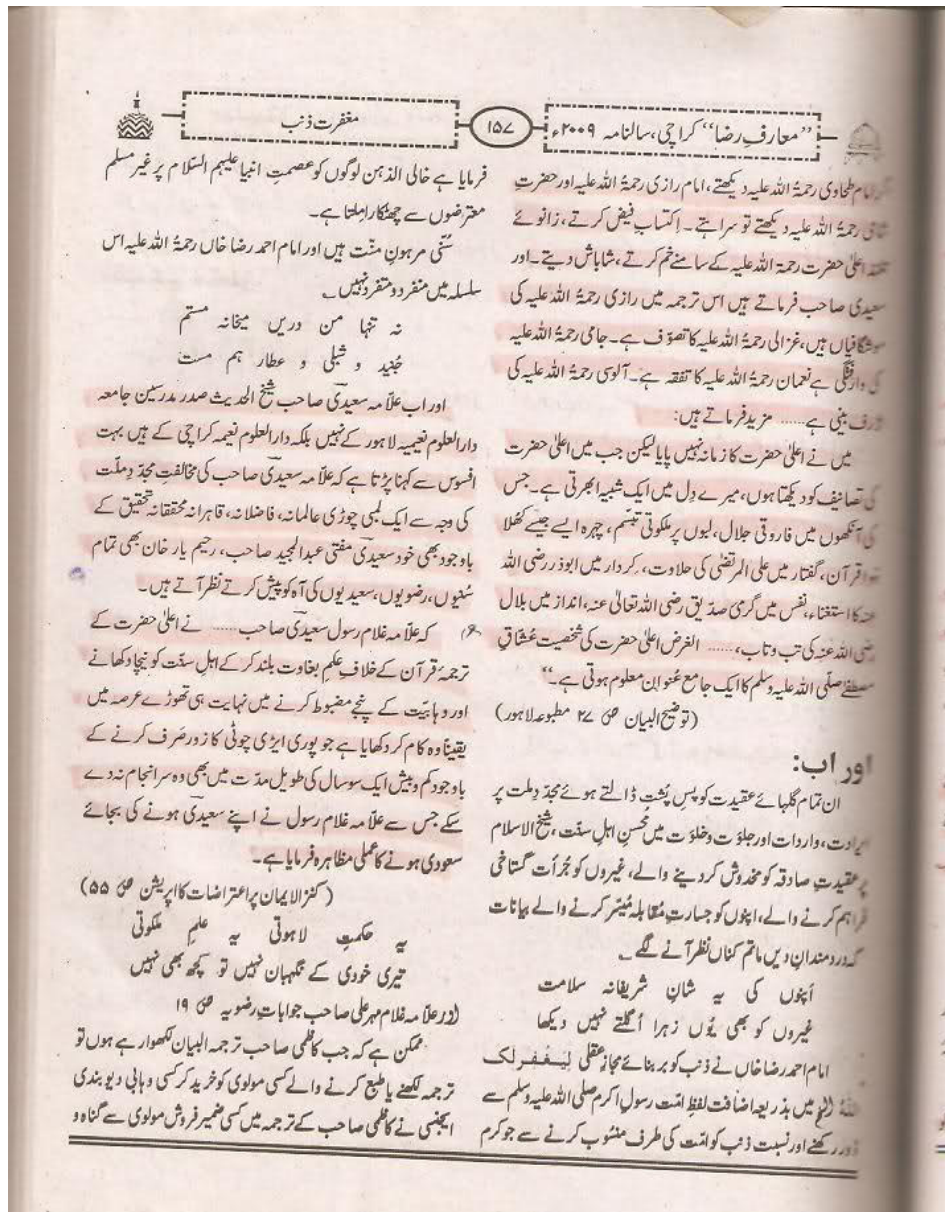 "معارفِ رضا" کراچی، سالنامہ ۲۰۰۹ء
۱۵۷
مغفرت ذنب
امام طحاوی رحمۃ اللہ علیہ دیکھتے، امام رازی رحمۃ اللہ علیہ اور حضرت
شامی رحمۃ اللہ علیہ دیکھتے تو سراہتے۔ اِکتساب فیض کرتے، زانوئے
اعلیٰ حضرت رحمۃ اللہ علیہ کے سامنے خم کرتے، شاباش دیتے۔ اور
سعیدی صاحب فرماتے ہیں اس ترجمہ میں رازی رحمۃ اللہ علیہ کی
موشگافیاں ہیں، غزالی رحمۃ اللہ علیہ کا تصوّف ہے۔ جامی رحمۃ اللہ علیہ
کی وارفتگی ہے نعمان رحمۃ اللہ علیہ کا تفقہ ہے۔ آلوسی رحمۃ اللہ علیہ کی
ژرف بینی ہے...... مزید فرماتے ہیں:
میں نے اعلیٰ حضرت کا زمانہ نہیں پایا لیکن جب میں اعلیٰ حضرت
کی تصانیف کو دیکھتا ہوں، میرے دِل میں ایک شبیہ ابھرتی ہے۔ جس
کی آنکھوں میں فاروقی جلال، لبوں پر ملکوتی تبسّم، چہرہ ایسے جیسے کُھلا
ہوا قرآن، گفتار میں علی المرتضٰی کی حلاوت، کِردار میں ابوذر رضی اللہ
عنہ کا استغناء، نفس میں گرمی صدّیق رضی اللہ تعالیٰ عنہ، انداز میں بلال
رضی اللہ عنہ کی تب و تاب، ...... الغرض اعلیٰ حضرت کی شخصیت عُشّاقِ
مصطفےٰ صلّی اللہ علیہ وسلم کا ایک جامع عُنوان معلوم ہوتی ہے۔"
(توضیح البیان ص ۲۷ مطبوعہ لاہور)
اور اب:
ان تمام گلہائے عقیدت کو پسِ پُشت ڈالتے ہوئے مجدّدِ ملت پر
ارادت، واردات اور جلوَت و خلوَت میں محسنِ اہلِ سنّت، شیخ الاسلام
پر عقیدتِ صادقہ کو مخدوش کر دینے والے، غیروں کو جُرأت گستاخی
فراہم کرنے والے، اپنوں کو جسارتِ مُقابلہ مُیّسر کرنے والے بیانات
کہ دردمندانِ دیں ماتم کناں نظر آنے لگے
اَپنوں کی یہ شانِ شریفانہ سلامت
غیروں کو بھی یُوں زہرا اُگلتے نہیں دیکھا
امام احمد رضا خاں نے ذنب کو بر بنائے مجازِ عقلی لِیَغْفِرَ لَکَ
اللّٰہُ الخ میں بذریعہ اضافت لفظِ امّت رسولِ اکرم صلی اللہ علیہ وسلم سے
دُور رکھنے اور نسبت ذنب کو امّت کی طرف منسُوب کرنے سے جو کرم
فرمایا ہے خالی الذہن لوگوں کو عصمتِ انبیا علیہم السّلام پر غیر مسلم
معترضوں سے چھٹکارا مِلتا ہے۔
سُنّی مرہونِ منّت ہیں اور امام احمد رضا خاں رحمۃ اللہ علیہ اس
سلسلہ میں منفرد و متفرد نہیں
نہ تنہا من دریں میخانہ مستم
جُنید و شبلی و عطار ہم مست
اور اب علّامہ سعیدی صاحب شیخ الحدیث صدر مدرسین جامعہ
دارالعلوم نعیمیہ لاہور کے نہیں بلکہ دارالعلوم نعیمہ کراچی کے ہیں بہت
افسوس سے کہنا پڑتا ہے کہ علّامہ سعیدی صاحب کی مخالفتِ مجدّدِ ملّت
کی وجہ سے ایک لمبی چوڑی عالمانہ، فاضلانہ، قاہرانہ محققانہ تحقیق کے
باوجود بھی خود سعیدی مفتی عبدالمجید صاحب، رحیم یار خان بھی تمام
سُنیوں، رضویوں، سعیدیوں کی آہ کو پیش کرتے نظر آتے ہیں۔
کہ علّامہ غلام رسول سعیدی صاحب...... نے اعلیٰ حضرت کے
ترجمۂ قرآن کے خلاف علَمِ بغاوت بلند کر کے اہلِ سنّت کو نیچا دکھانے
اور وہابیّت کے پنجے مضبوط کرنے میں نہایت ہی تھوڑے عرصہ میں
یقیناً وہ کام کر دکھایا ہے جو پوری ایڑی چوٹی کا زور صَرف کرنے کے
باوجود کم و بیش ایک سو سال کی طویل مدّت میں بھی وہ سرانجام نہ دے
سکے جس سے علّامہ غلام رسول نے اپنے سعیدی ہونے کی بجائے
سعودی ہونے کا عملی مظاہرہ فرمایا ہے۔
(کنزالایمان پر اعتراضات کا اپریشن ص ۵۵)
یہ حکمتِ لاہوتی یہ علمِ ملکوتی
تیری خودی کے نگہبان نہیں تو کچھ بھی نہیں
از علّامہ غلام مہر علی صاحب جواباتِ رضویہ ص ۱۹
ممکن ہے کہ جب کاظمی صاحب ترجمہ البیان لکھوا رہے ہوں تو
ترجمہ لکھنے یا طبع کرنے والے کسی مولوی کو خرید کر کسی وہابی دیوبندی
ایجنسی نے کاظمی صاحب کے ترجمہ میں کسی ضمیر فروش مولوی سے گناہ و